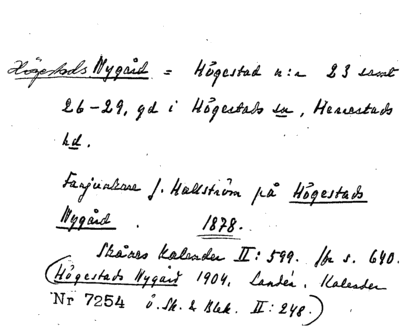 Högestads Nygård = Högestad n:r 23 samt
26-29, gd i Högestads sn, Herrestads
hd.
Fanjunkare J. Hallström på Högestads
Nygård. 1878.
Skånes Kalender II: 599. s. 640.
(Högestads Nygård 1904. Landér. Kalender
Nr 7254 ö. Sk. & Blek. II: 248.)